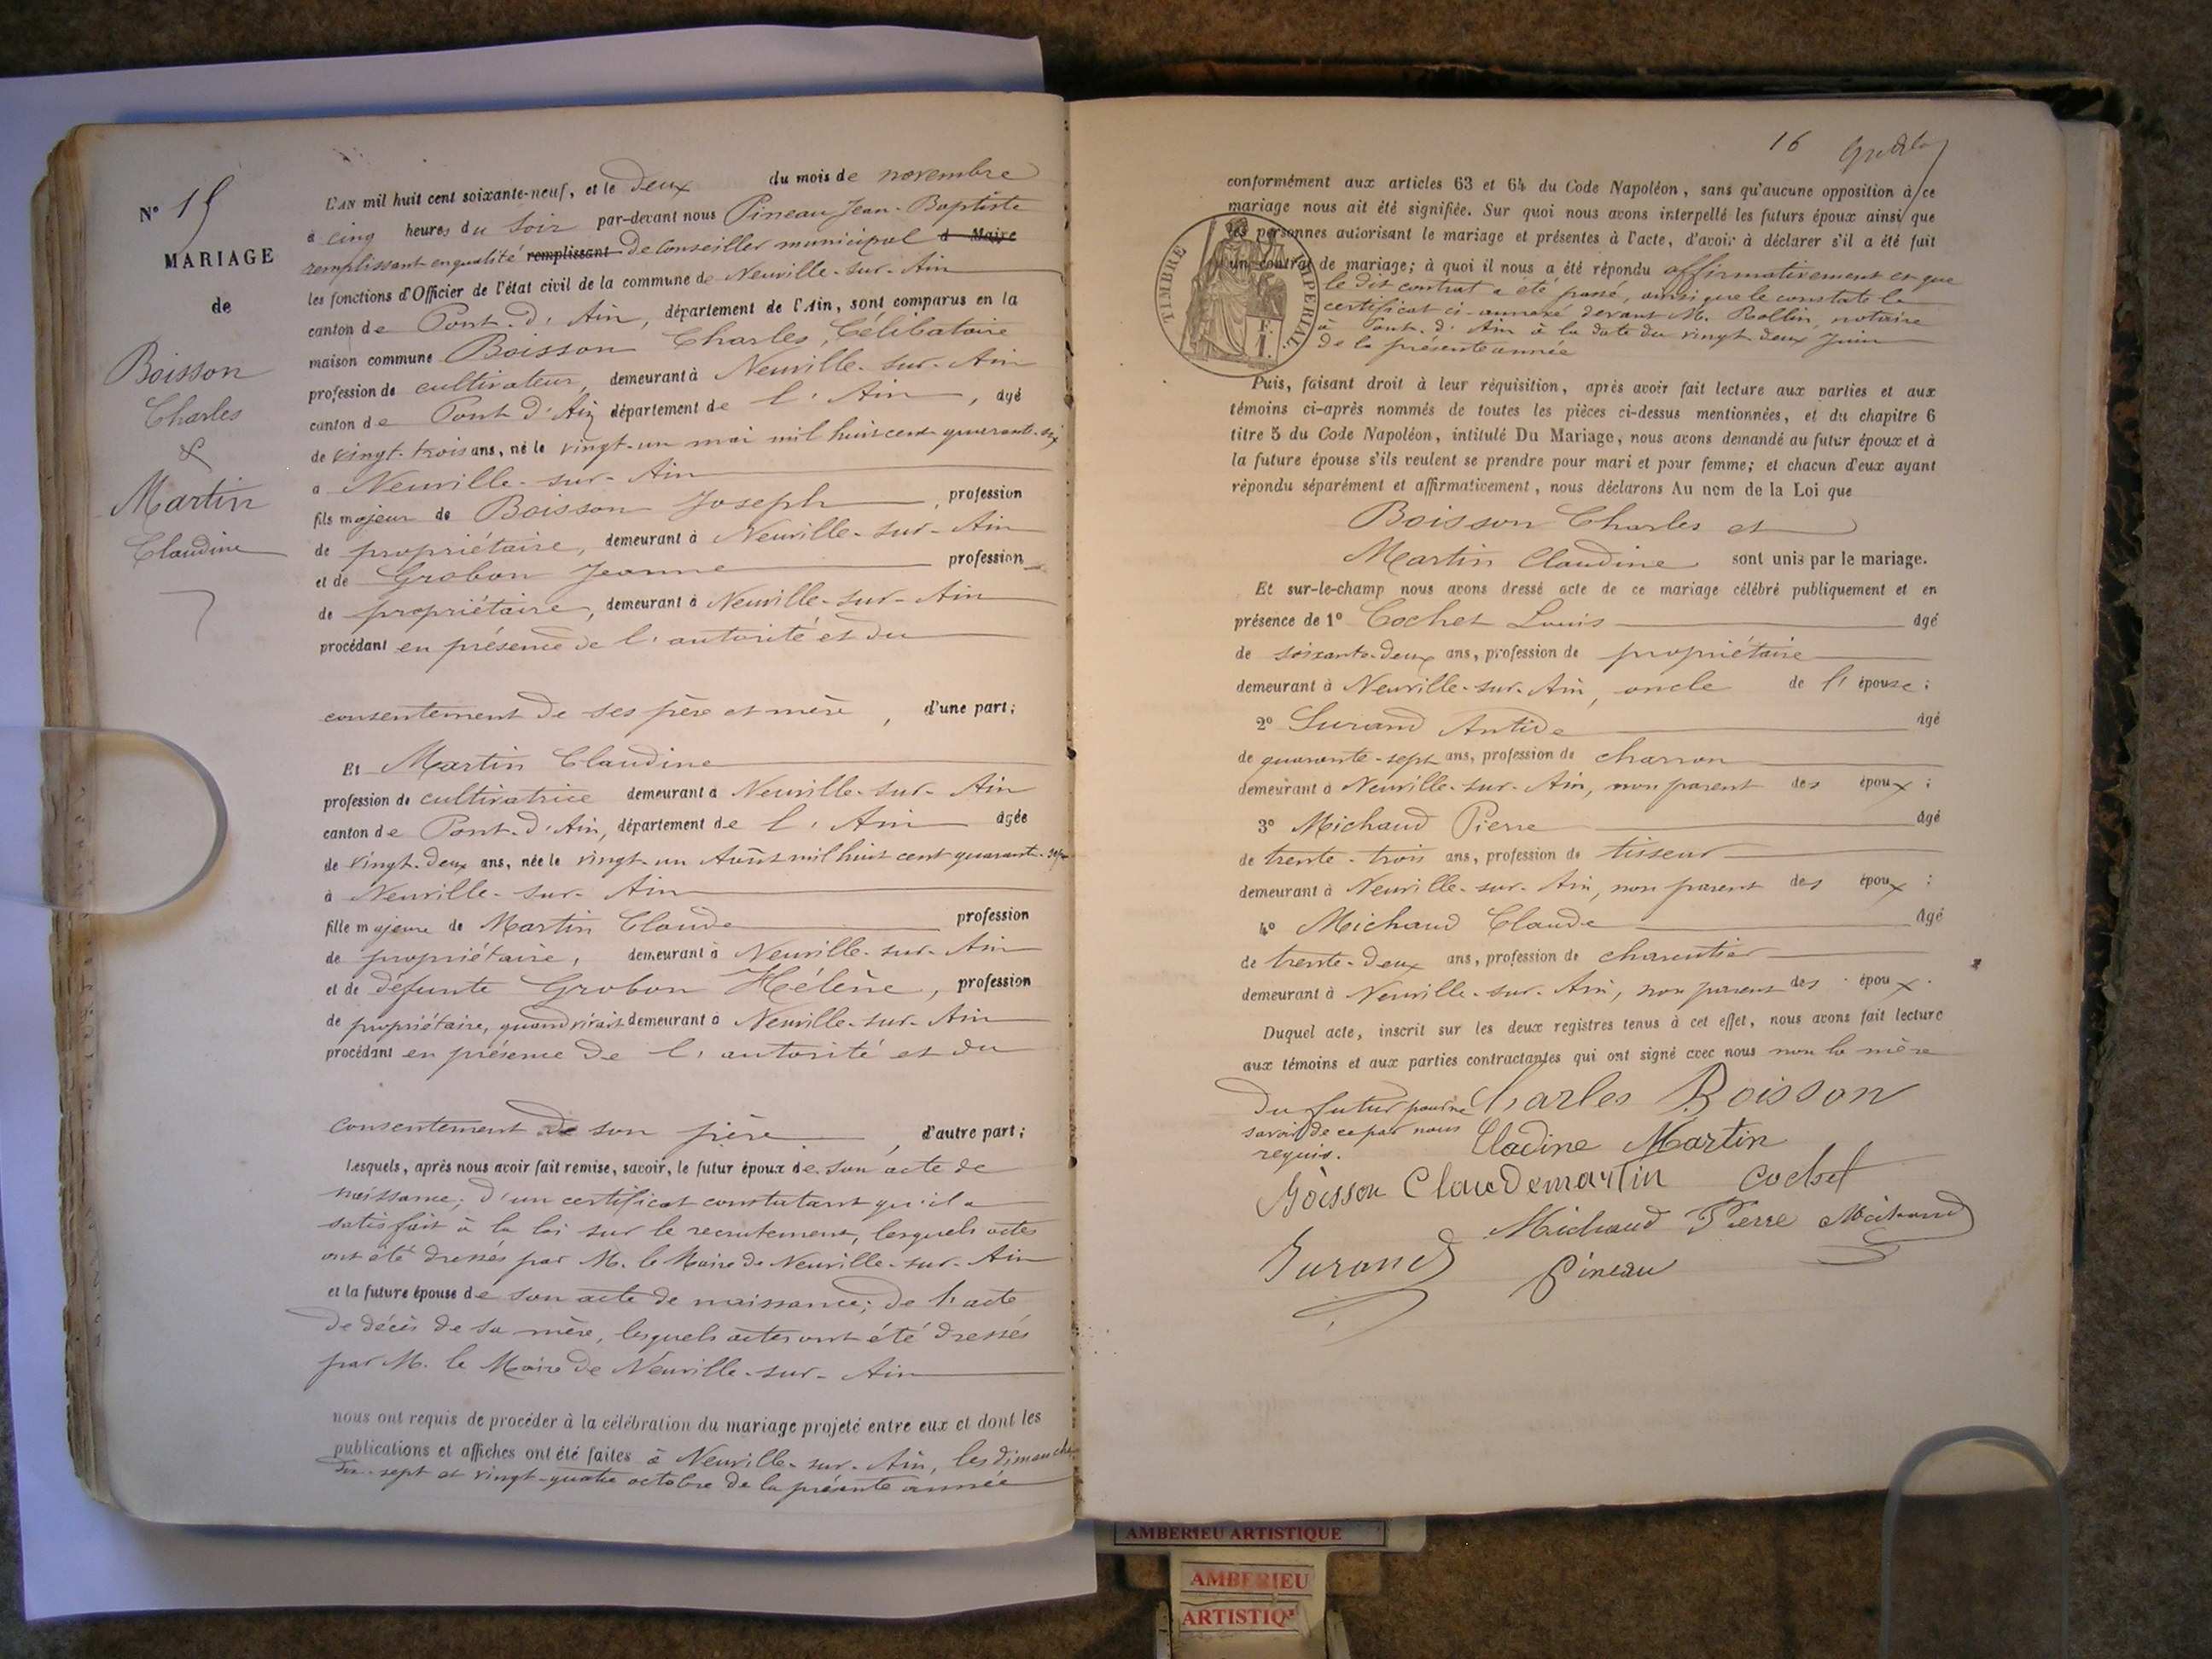 N° 15
MARIAGE
de
Boisson
Charles
&
Martin
Claudine
L'AN mil huit cent soixante-neuf, et le deux du mois de novembre
à cinq heures du soir par-devant nous Pineau Jean-Baptiste
remplissant en qualité remplissant de conseiller municipal Maire
les fonctions d'Officier de l'état civil de la commune de Neuville-sur-Ain
canton de Pont-d'Ain, département de l'Ain, sont comparus en la
maison commune Boisson Charles, Célibataire
profession de cultivateur, demeurant à Neuville-sur-Ain
canton de Pont d'Ain département de l'Ain, âgé
de vingt-trois ans, né le vingt-un mai mil huit cent quarante-six
a Neuville-sur-Ain
fils majeur de Boisson Joseph, profession
de propriétaire, demeurant à Neuville-sur-Ain
et de Grobon Jeanne profession
de propriétaire, demeurant à Neuville-sur-Ain
procédant en présence de l'autorité et du
consentement de ses père et mère, d'une part;
Et Martin Claudine
profession de cultivatrice demeurant à Neuville-sur-Ain
canton de Pont-d'Ain, département de l'Ain âgée
de vingt-deux ans, née le vingt-un Août mil huit cent quarante-sept
à Neuville-sur-Ain
fille majeure de Martin Claude profession
de propriétaire, demeurant à Neuville-sur-Ain
et de défunte Grobon Hélène, profession
de propriétaire, quand vivait demeurant à Neuville-sur-Ain
procédant en présence de l'autorité et du
consentement de son père, d'autre part;
Lesquels, après nous avoir fait remise, savoir, le futur époux de son acte de
naissance; d'un certificat constatant qu'il a
satisfait à la loi sur le recrutement, lesquels actes
ont été dressés par M. le Maire de Neuville-sur-Ain
et la future épouse de son acte de naissance; de l'acte
de décès de sa mère, lesquels actes ont été dressés
par M. le Maire de Neuville-sur-Ain
nous ont requis de procéder à la célébration du mariage projeté entre eux et dont les
publications et affiches ont été faites à Neuville-sur-Ain, les dimanches
dix-sept et vingt-quatre octobre de la présente année
16
conformément aux articles 63 et 64 du Code Napoléon, sans qu'aucune opposition à ce
mariage nous ait été signifiée. Sur quoi nous avons interpellé les futurs époux ainsi que
les personnes autorisant le mariage et présentes à l'acte, d'avoir à déclarer s'il a été fait
un contrat de mariage; à quoi il nous a été répondu affirmativement et que
le dit contrat a été passé, ainsi que le constate le
certificat ci-annexé devant M. Rollin, notaire
à Pont-d'Ain à la date du vingt-deux Juin
de la présente année
TIMBRE IMPERIAL.
Puis, faisant droit à leur réquisition, après avoir fait lecture aux parties et aux
témoins ci-après nommés de toutes les pièces ci-dessus mentionnées, et du chapitre 6
titre 5 du Code Napoléon, intitulé Du Mariage, nous avons demandé au futur époux et à
la future épouse s'ils veulent se prendre pour mari et pour femme; et chacun d'eux ayant
répondu séparément et affirmativement, nous déclarons Au nom de la Loi que
Boisson Charles et
Martin Claudine sont unis par le mariage.
Et sur-le-champ nous avons dressé acte de ce mariage célébré publiquement et en
présence de 1° Cochet Louis âgé
de soixante-deux ans, profession de propriétaire
demeurant à Neuville-sur-Ain, oncle de l'épouse;
2° Durand Antide âgé
de quarante-sept ans, profession de charron
demeurant à Neuville-sur-Ain, non parent des époux;
3° Michaud Pierre âgé
de trente-trois ans, profession de tisseur
demeurant à Neuville-sur-Ain, non parent des époux;
4° Michaud Claude âgé
de trente-deux ans, profession de charpentier
demeurant à Neuville-sur-Ain, non parent des époux.
Duquel acte, inscrit sur les deux registres tenus à cet effet, nous avons fait lecture
aux témoins et aux parties contractantes qui ont signé avec nous non la mère
du futur pour ne
savoir de ce par nous
requis.
Charles Boisson
Cladine Martin
Boisson Claude martin Cochet
Michaud Pierre Michaud
Durand Pineau
AMBERIEU ARTISTIQUE
AMBERIEU
ARTISTIQ